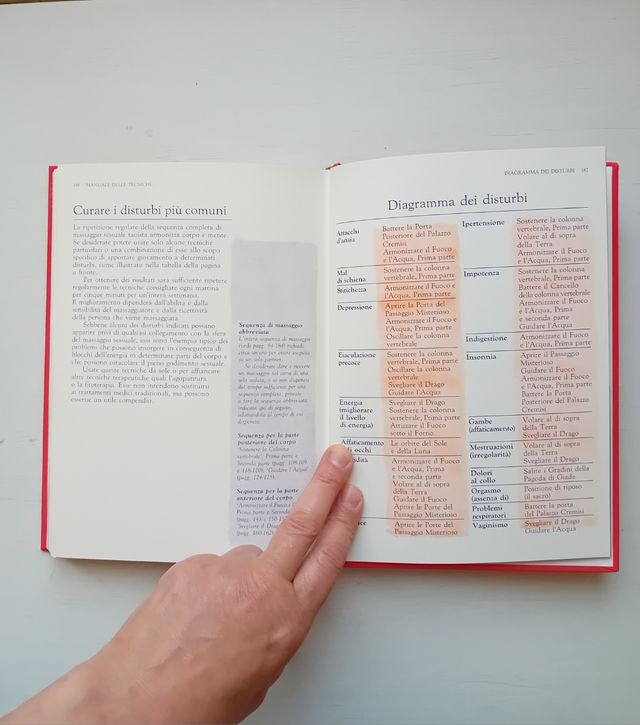 186 MANUALE DELLE TECNICHE
Curare i disturbi più comuni
La ripetizione regolare della sequenza completa di
massaggio sessuale taoista armonizza corpo e mente.
Se desiderate potete usare solo alcune tecniche
particolari o una combinazione di esse allo scopo
specifico di apportare giovamento a determinati
disturbi, come illustrato nella tabella della pagina
a fronte.
Per ottenere dei risultati sarà sufficiente ripetere
regolarmente le tecniche consigliate ogni mattina
per cinque minuti per un'intera settimana.
Il miglioramento dipenderà dall'abilità e dalla
sensibilità del massaggiatore e dalla ricettività
della persona che viene massaggiata.
Sebbene alcuni dei disturbi indicati possano
apparire privi di qualsiasi collegamento con la sfera
del massaggio sessuale, essi sono l'esempio tipico dei
problemi che possono insorgere in conseguenza di
blocchi dell'energia in determinate parti del corpo e
che possono ostacolare il pieno godimento sessuale.
Usate queste tecniche da sole o per affiancare
altre tecniche terapeutiche quali l'agopuntura
o la fitoterapia. Esse non intendono sostituirsi
ai trattamenti medici tradizionali, ma possono
esserne un utile compendio.
Sequenza di massaggio
abbreviata
L'intera sequenza di massaggio
(vedi pagg. 94-184) richiede
circa un'ora per essere eseguita
su un solo partner.
Se desiderate dare o ricevere
un massaggio nel corso di una
sola seduta, o se non disponete
del tempo sufficiente per una
sequenza completa, provate
a fare la sequenza abbreviata
indicata qui di seguito,
adattandola al tempo di cui
disponete.
Sequenza per la parte
posteriore del corpo
'Sostenere la Colonna
vertebrale', Prima parte e
Seconda parte (pagg. 108-109
e 118-120); 'Guidare l'Acqua'
(pagg. 124-125).
Sequenza per la parte
anteriore del corpo
'Armonizzare il Fuoco e
l'Acqua', Prima parte e Seconda
'Svegliare il Drago'
DIAGRAMMA DEI DISTURBI 187
Diagramma dei disturbi
Attacchi
d'ansia
Battere la Porta
Posteriore del Palazzo
Cremisi
Armonizzare il Fuoco
e l'Acqua, Prima parte
Mal
di schiena
Sostenere la colonna
vertebrale, Prima parte
Stitichezza
Armonizzare il Fuoco e
l'Acqua, Prima parte
Depressione
Aprire la Porta del
Passaggio Misterioso
Armonizzare il Fuoco e
l'Acqua, Prima parte
Oscillare la colonna
vertebrale
Eiaculazione
precoce
Sostenere la colonna
vertebrale, Prima parte
Oscillare la colonna
vertebrale
Svegliare il Drago
Guidare l'Acqua
Energia
(migliorare
il livello
di energia)
Svegliare il Drago
Sostenere la colonna
vertebrale, Prima parte
Attizzare il Fuoco
sotto il Forno
Affaticamento
occhi
Le orbite del Sole
e della Luna
Armonizzare il Fuoco
e l'Acqua, Prima
e seconda parte
Volare al di sopra
della Terra
Guidare il Fuoco
Aprire le Porte del
Passaggio Misterioso
Aprire le Porte del
Passaggio Misterioso
Ipertensione
Sostenere la colonna
vertebrale, Prima parte
Volare al di sopra
della Terra
Armonizzare il Fuoco
e l'Acqua, Prima parte
Impotenza
Sostenere la colonna
vertebrale, Prima parte
Battere il Cancello
della colonna vertebrale
Armonizzare il Fuoco
e l'Acqua, Prima
e seconda parte
Guidare l'Acqua
Indigestione
Armonizzare il Fuoco
e l'Acqua, Prima parte
Insonnia
Aprire il Passaggio
Misterioso
Guidare il Fuoco
Armonizzare il Fuoco
e l'Acqua, Prima parte
Battere la Porta
Posteriore del Palazzo
Cremisi
Gambe
(affaticamento)
Volare al di sopra
della Terra
Svegliare il Drago
Mestruazioni
(irregolarità)
Volare al di sopra
della Terra
Svegliare il Drago
Dolori
al collo
Salire i Gradini della
Pagoda di Giada
Orgasmo
(assenza di)
Posizione di riposo
(il sacro)
Problemi
respiratori
Battere la porta
del Palazzo Cremisi
Vaginismo
Svegliare il Drago
Guidare l'Acqua